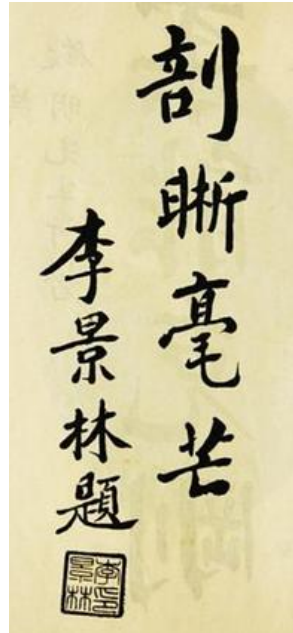 剖晰毫芒
李景林題
李景林印